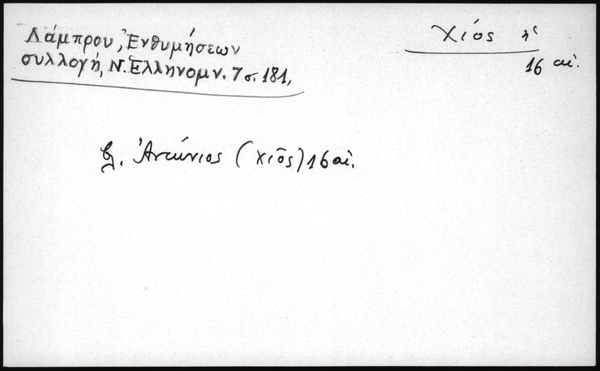 Λάμπρου, Ἐνθυμήσεων
συλλογή, Ν. Ἑλληνομν. 7 σ. 181,
Χίος
16 αἰ.
βλ. Ἀντώνιος (Χῖος) 16 αἰ.